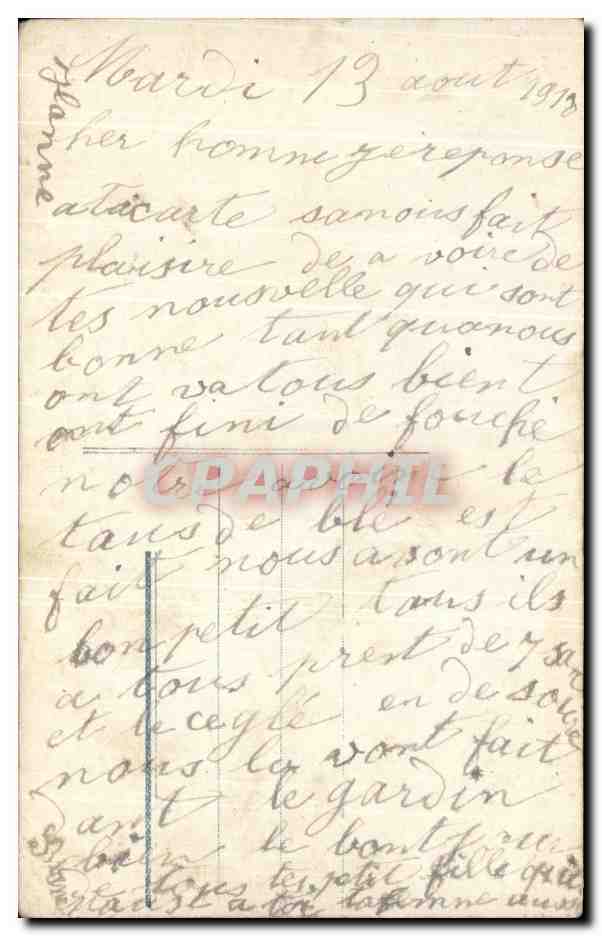 Jeanne
Mardi 13 aout 1918
her homme je reponse
a ta carte sanous fait
plaisire de a voire de
tes nousvelle qui sont
bonne tant qua nous
ont va tous bient
ont fini de fouché
nous avont le
taus de blé est
fait nous a sont un
bon petit taus ils
a tous prent de 7
et le ceglé en de
nous la vont fait
dant le gardin
le bont
tous tes petit fille qui
a toi ta femme
CPAPHIL